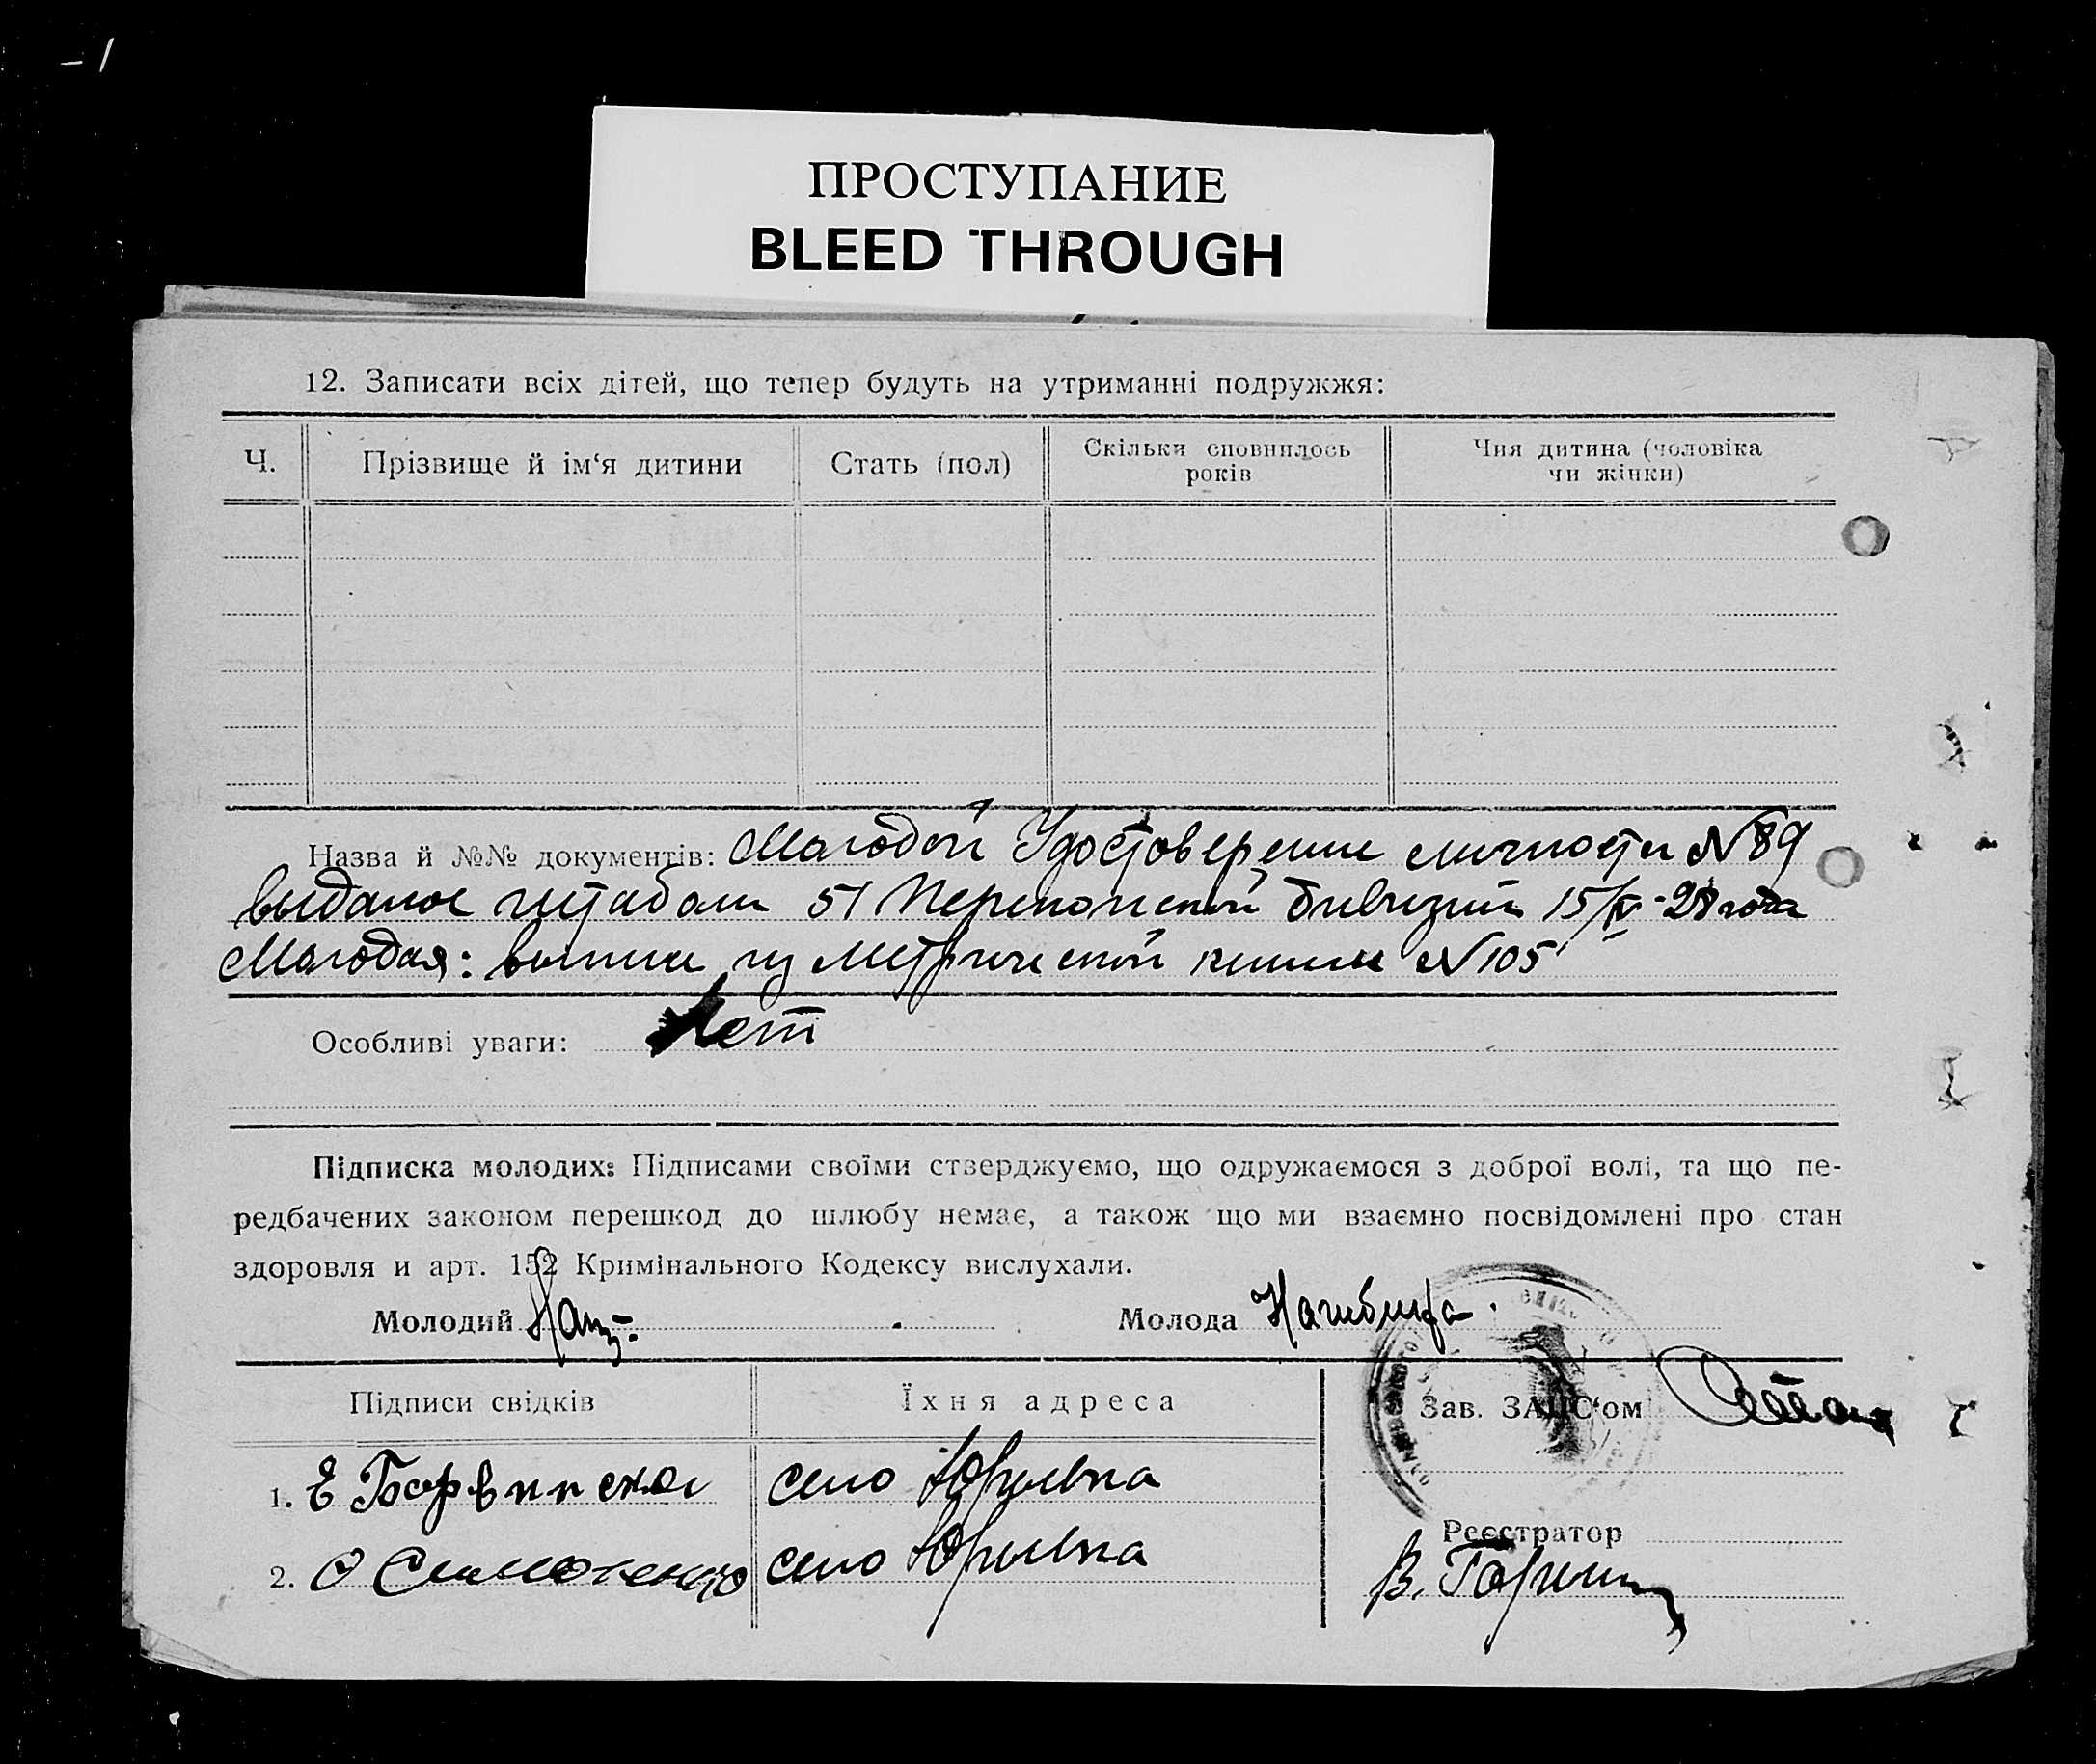 ПРОСТУПАНИЕ
BLEED THROUGH
12. Записати всіх дітей, що тепер будуть на утриманні подружжя:
Ч. Прізвище й ім‘я дитини Стать (пол) Скільки сповнилось років Чия дитина (чоловіка чи жінки)
Назва й №№ документів: Молодой Удостоверение личности №89
выданое штабом 51 Перекопской дивизии 15/ -28 года
Молодая: выписи из метрической книги №105
Особливі уваги: Нет
Підписка молодих: Підписами своїми стверджуємо, що одружаємося з доброї волі, та що пе-
редбачених законом перешкод до шлюбу немає, а також що ми взаємно посвідомлені про стан
здоровля и арт. 152 Кримінального Кодексу вислухали.
Молодий Молода
Підписи свідків Їхня адреса Зав. ЗАГС‘ом
1. Е село Юрьевка
Реєстратор
2. О село Юрьевка
В.